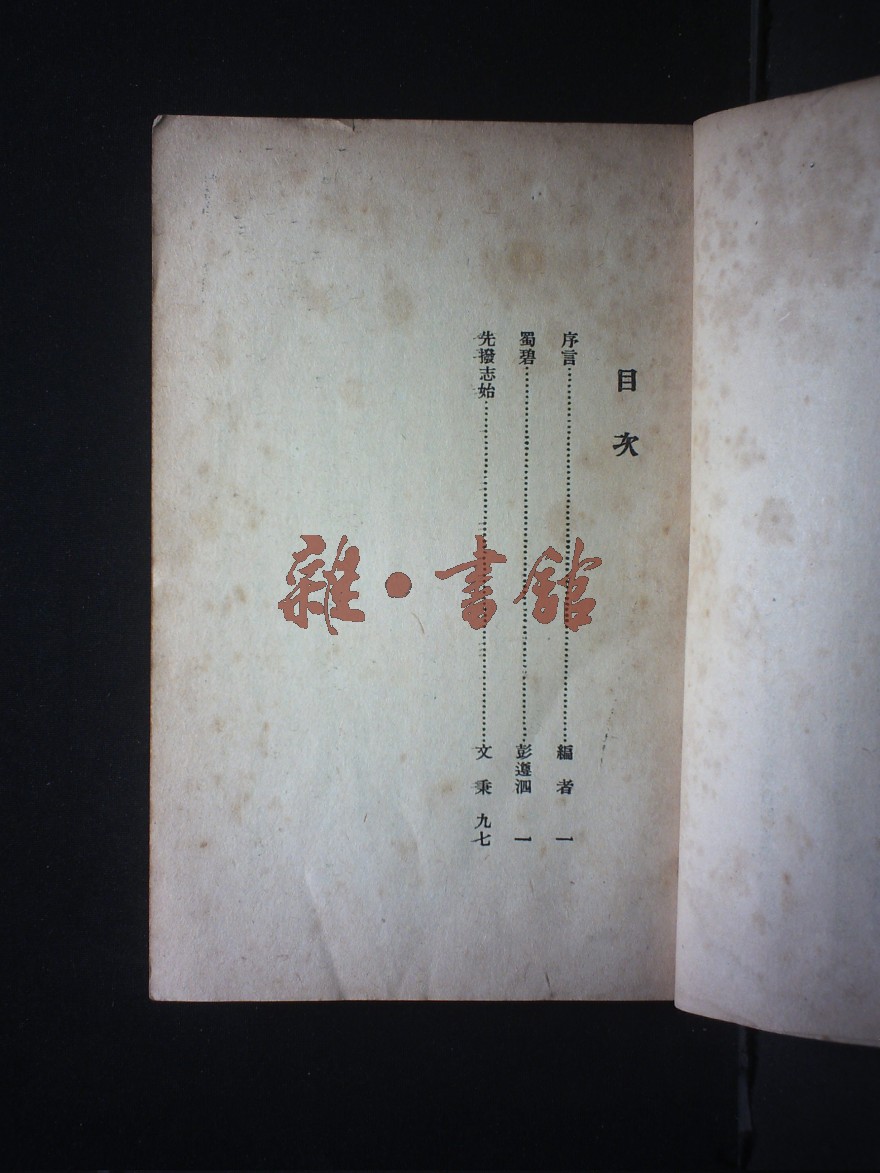 目次
序言……………………編者 一
蜀碧……………………彭遵泗 一
先撥志始……………………文秉 九七
雜·書館